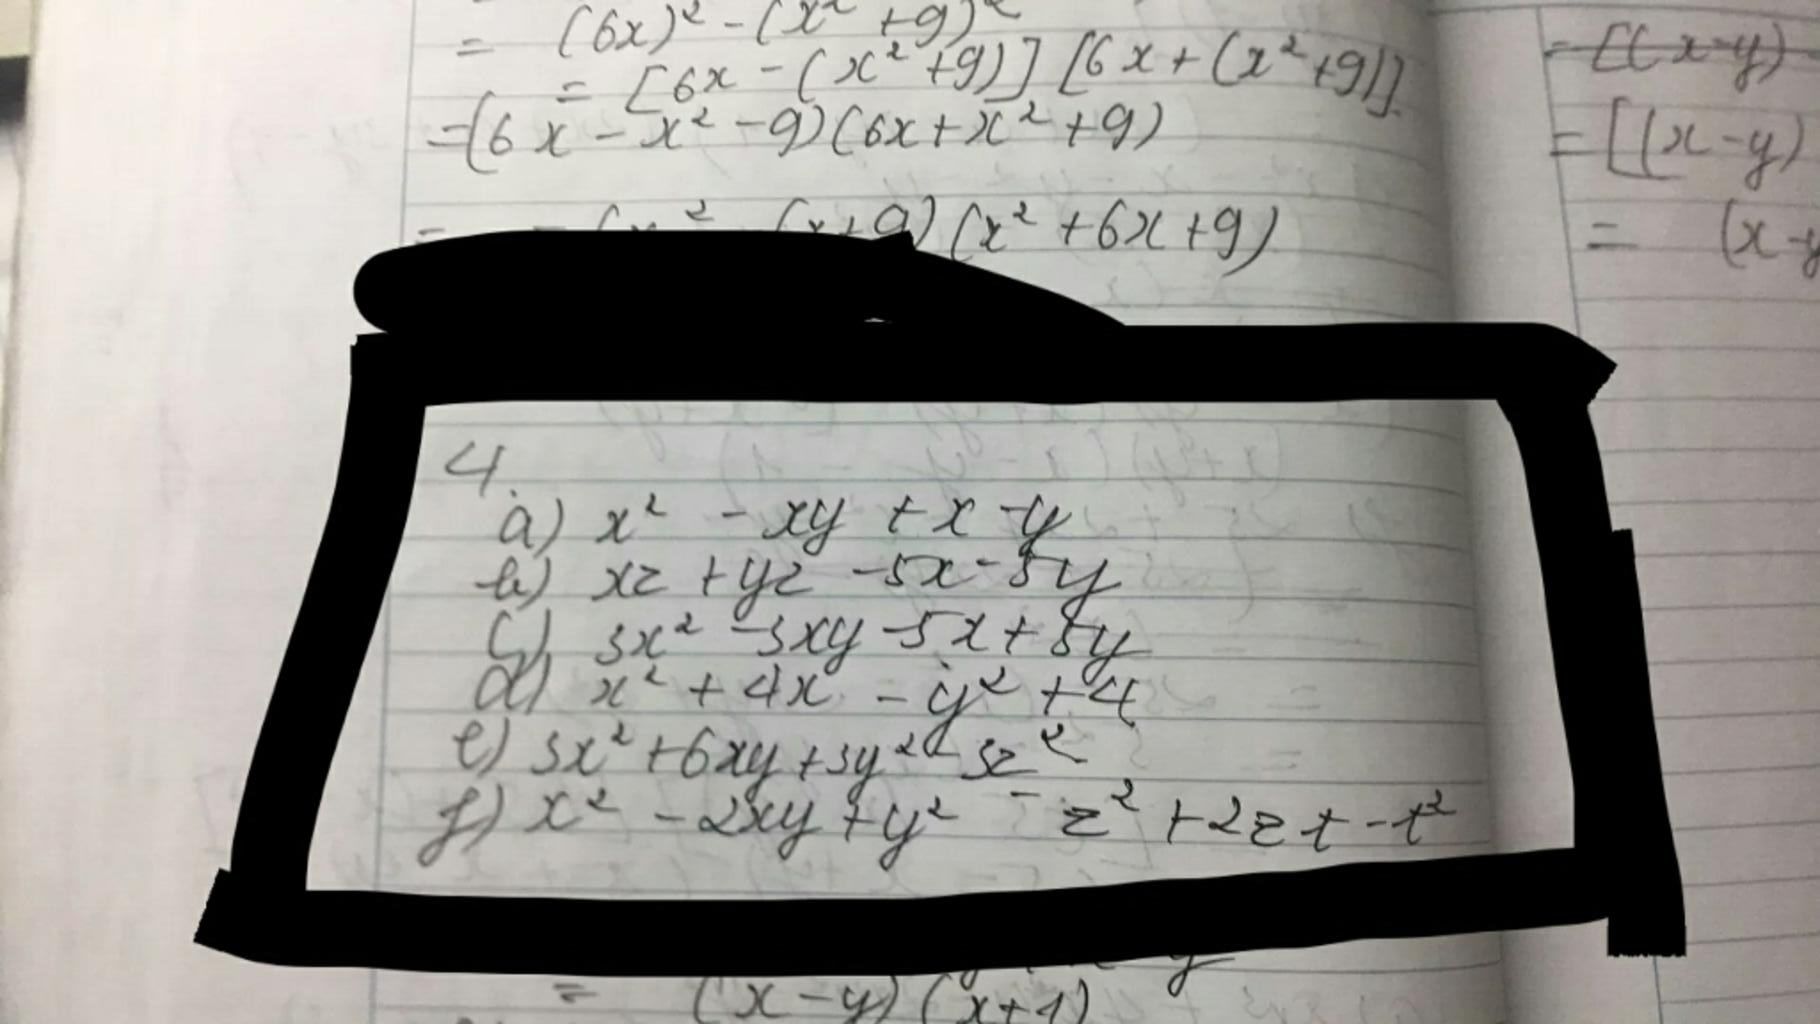 = (6x)² - (x² + 9)²
= [6x - (x² + 9)] [6x + (x² + 9)]
= (6x - x² - 9)(6x + x² + 9)
(x² + 6x + 9)
4.
a) x² - xy + x - y
b) xz + yz - 5x - 5y
c) 3x² - 3xy - 5x + 5y
d) x² + 4x - y² + 4
e) 3x² + 6xy + 3y² - 3z²
f) x² - 2xy + y² - z² + 2zt - t²
= (x - y)(x + 1)
= [(x - y)
= [(x - y)
= (x - y